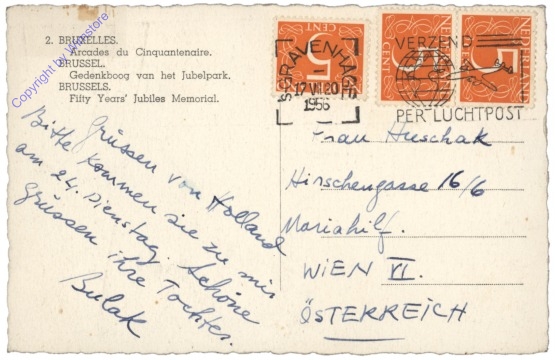 2. BRUXELLES.
Arcades du Cinquantenaire.
BRUSSEL.
Gedenkboog van het Jubelpark.
BRUSSELS.
Fifty Years' Jubiles Memorial.
Copyright by Wiktstore
5
CENT
NEDERLAND
5
CENT
NEDERLAND
5
CENT
'S-GRAVENHAGE
17 VII 20
1956
VERZEND
PER LUCHTPOST
Grüssen von Holland
Bitte kommen sie zu mir
am 24. Dienstag. Schöne
Grüssen ihre Tochter.
Bulak
Frau Huschak
Hirschengasse 16/6
Mariahilf.
WIEN VI.
ÖSTERREICH